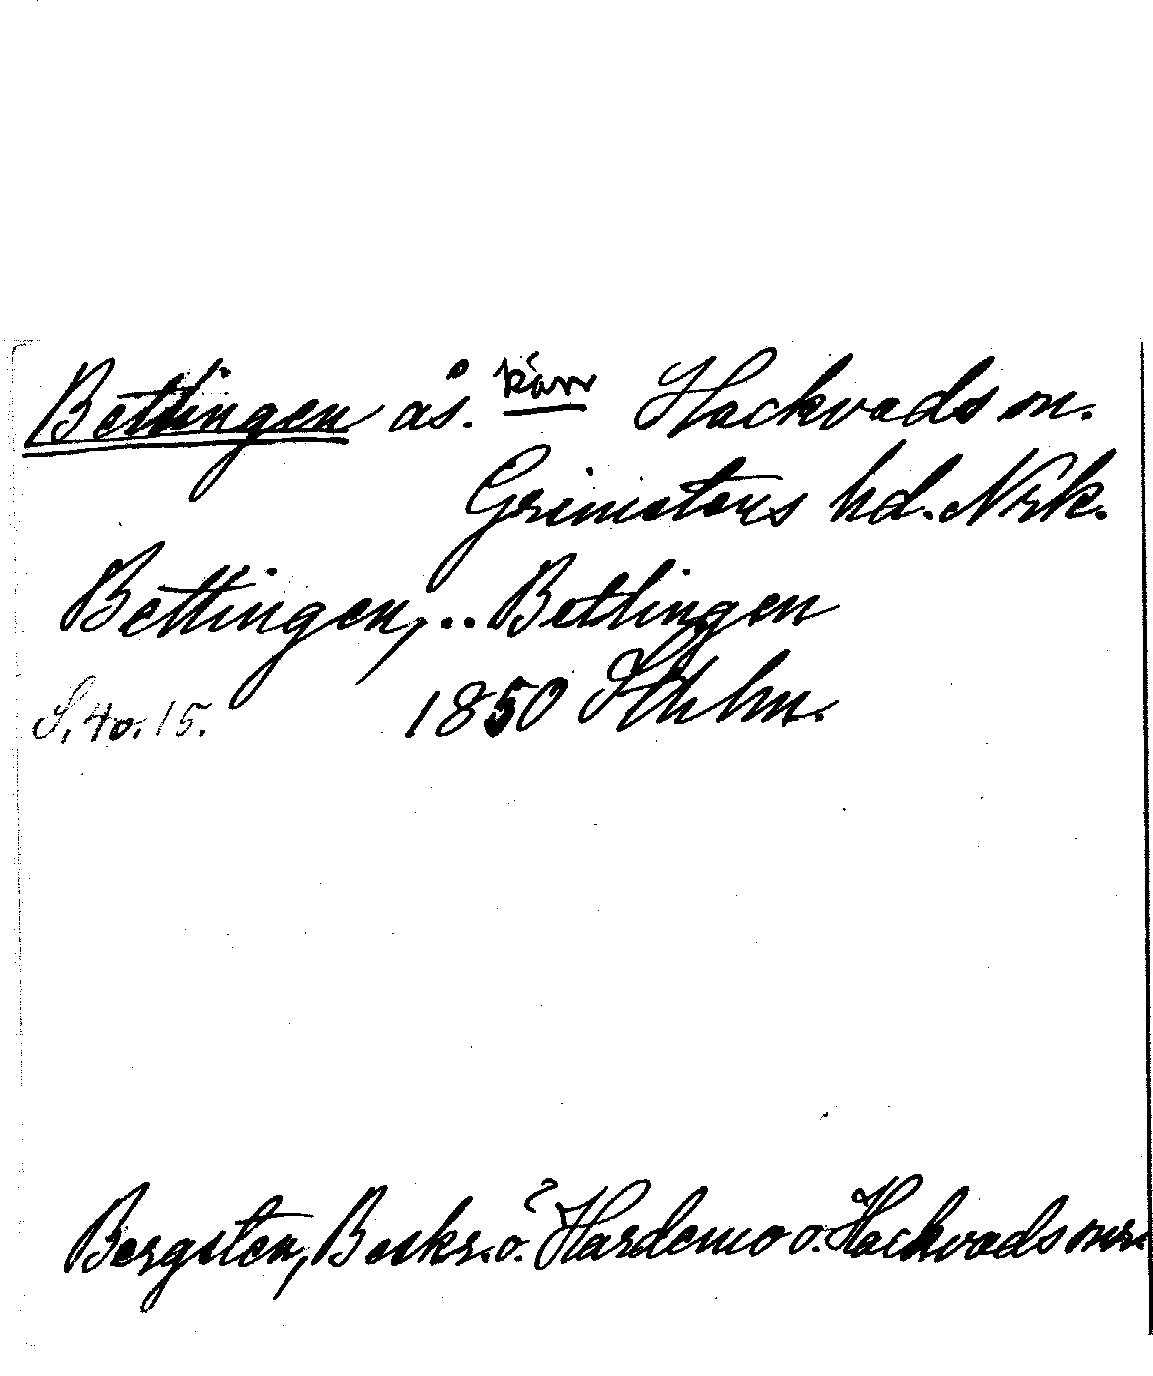 Bettingen ås. kärr Hackvads sn.
Grimstens hd. Nrk.
Bettingen, .. Betlingen
S. 40. 15. 1850 Sthlm.
Bergsten, Beskr. ö. Hardemo o. Hackvads snr.